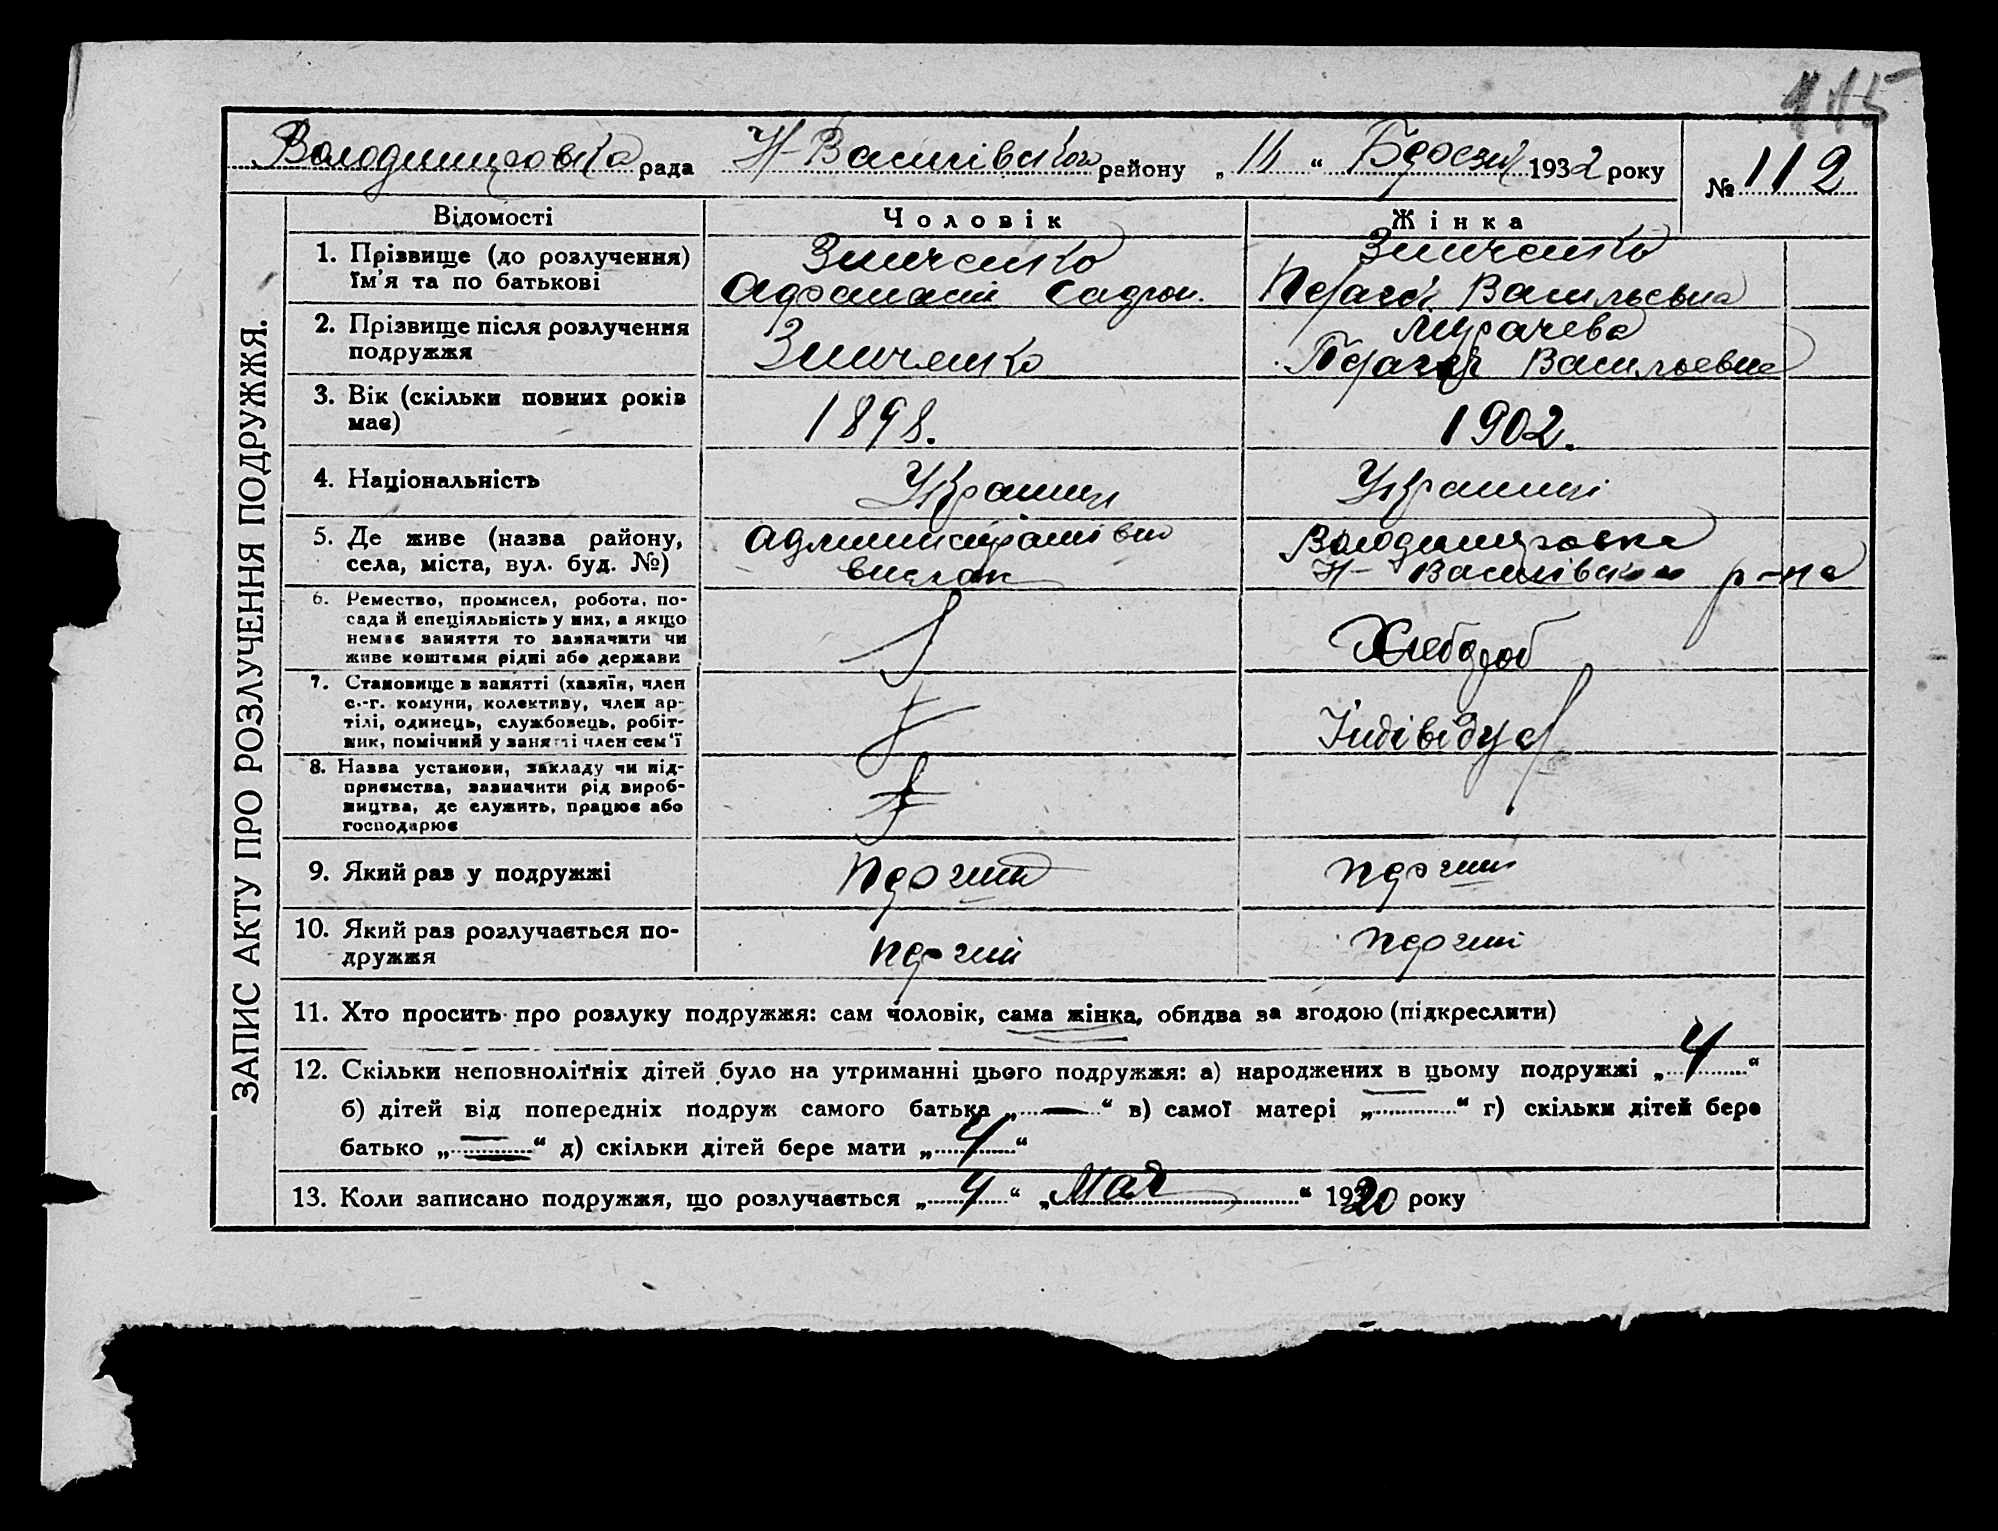 115
Володимировка рада Н-Василівського району „ 11 “ 1932 року
№ 112
ЗАПИС АКТУ ПРО РОЗЛУЧЕННЯ ПОДРУЖЖЯ.
Відомості Чоловік Жінка
1. Прізвище (до розлучення) Зинченко Зинченко
Їм'я та по батькові Васильевна
2. Прізвище після розлучення
подружжя Зинченко Васильевна
3. Вік (скільки повних років
має) 1898. 1902.
4. Національність Украинец Украинці
5. Де живе (назва району, Административно Володимировка
села, міста, вул. буд. №) выслан Н-Василівського р-на
6. Ремество, промисел, робота, по-
сада й спеціяльність у них, а якщо
немає заняття то зазначити чи Хлебороб
живе коштами рідні або держави
7. Становище в занятті (хазяїн, член
с.-г. комуни, колективу, член ар-
тілі, одинець, службовець, робіт- Індівідуал
ник, помічний у занятті член сем'ї
8. Назва установи, закладу чи під-
приємства, зазначити рід вироб-
ництва, де служить, працює або
господарює
9. Який раз у подружжі первий первий
10. Який раз розлучається по- первий первий
дружжя
11. Хто просить про розлуку подружжя: сам чоловік, сама жінка, обидва за згодою (підкреслити)
12. Скільки неповнолітніх дітей було на утриманні цього подружжя: а) народжених в цьому подружжі „ 4 “
б) дітей від попередніх подруж самого батька „ — “ в) самої матері „ — “ г) скільки дітей бере
батько „ — “ д) скільки дітей бере мати „ 4 “
13. Коли записано подружжя, що розлучається „ 4 “ „ Мая “ 1920 року